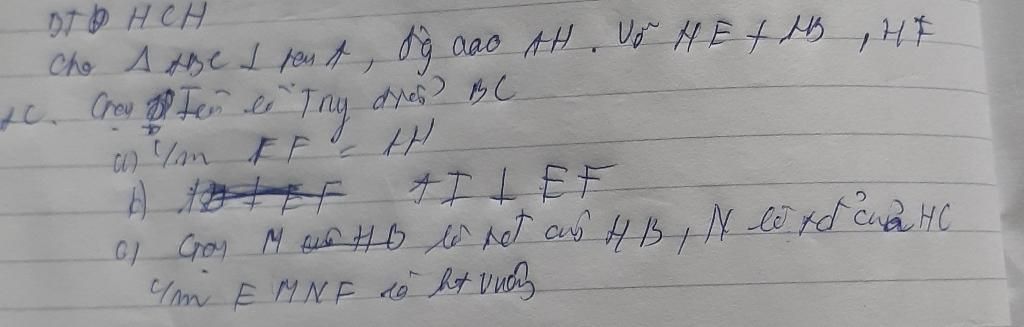 DT HCH
Cho Δ ABC ⊥ tại A, đg cao AH. Vẽ HE ⊥ AB, HF
AC. Gọi I là Tng điểm BC
a) C/m EF = AH
b) AI ⊥ EF
c) Gọi M là tđ của HB, N là tđ của HC
C/m EMNF là ht vuông